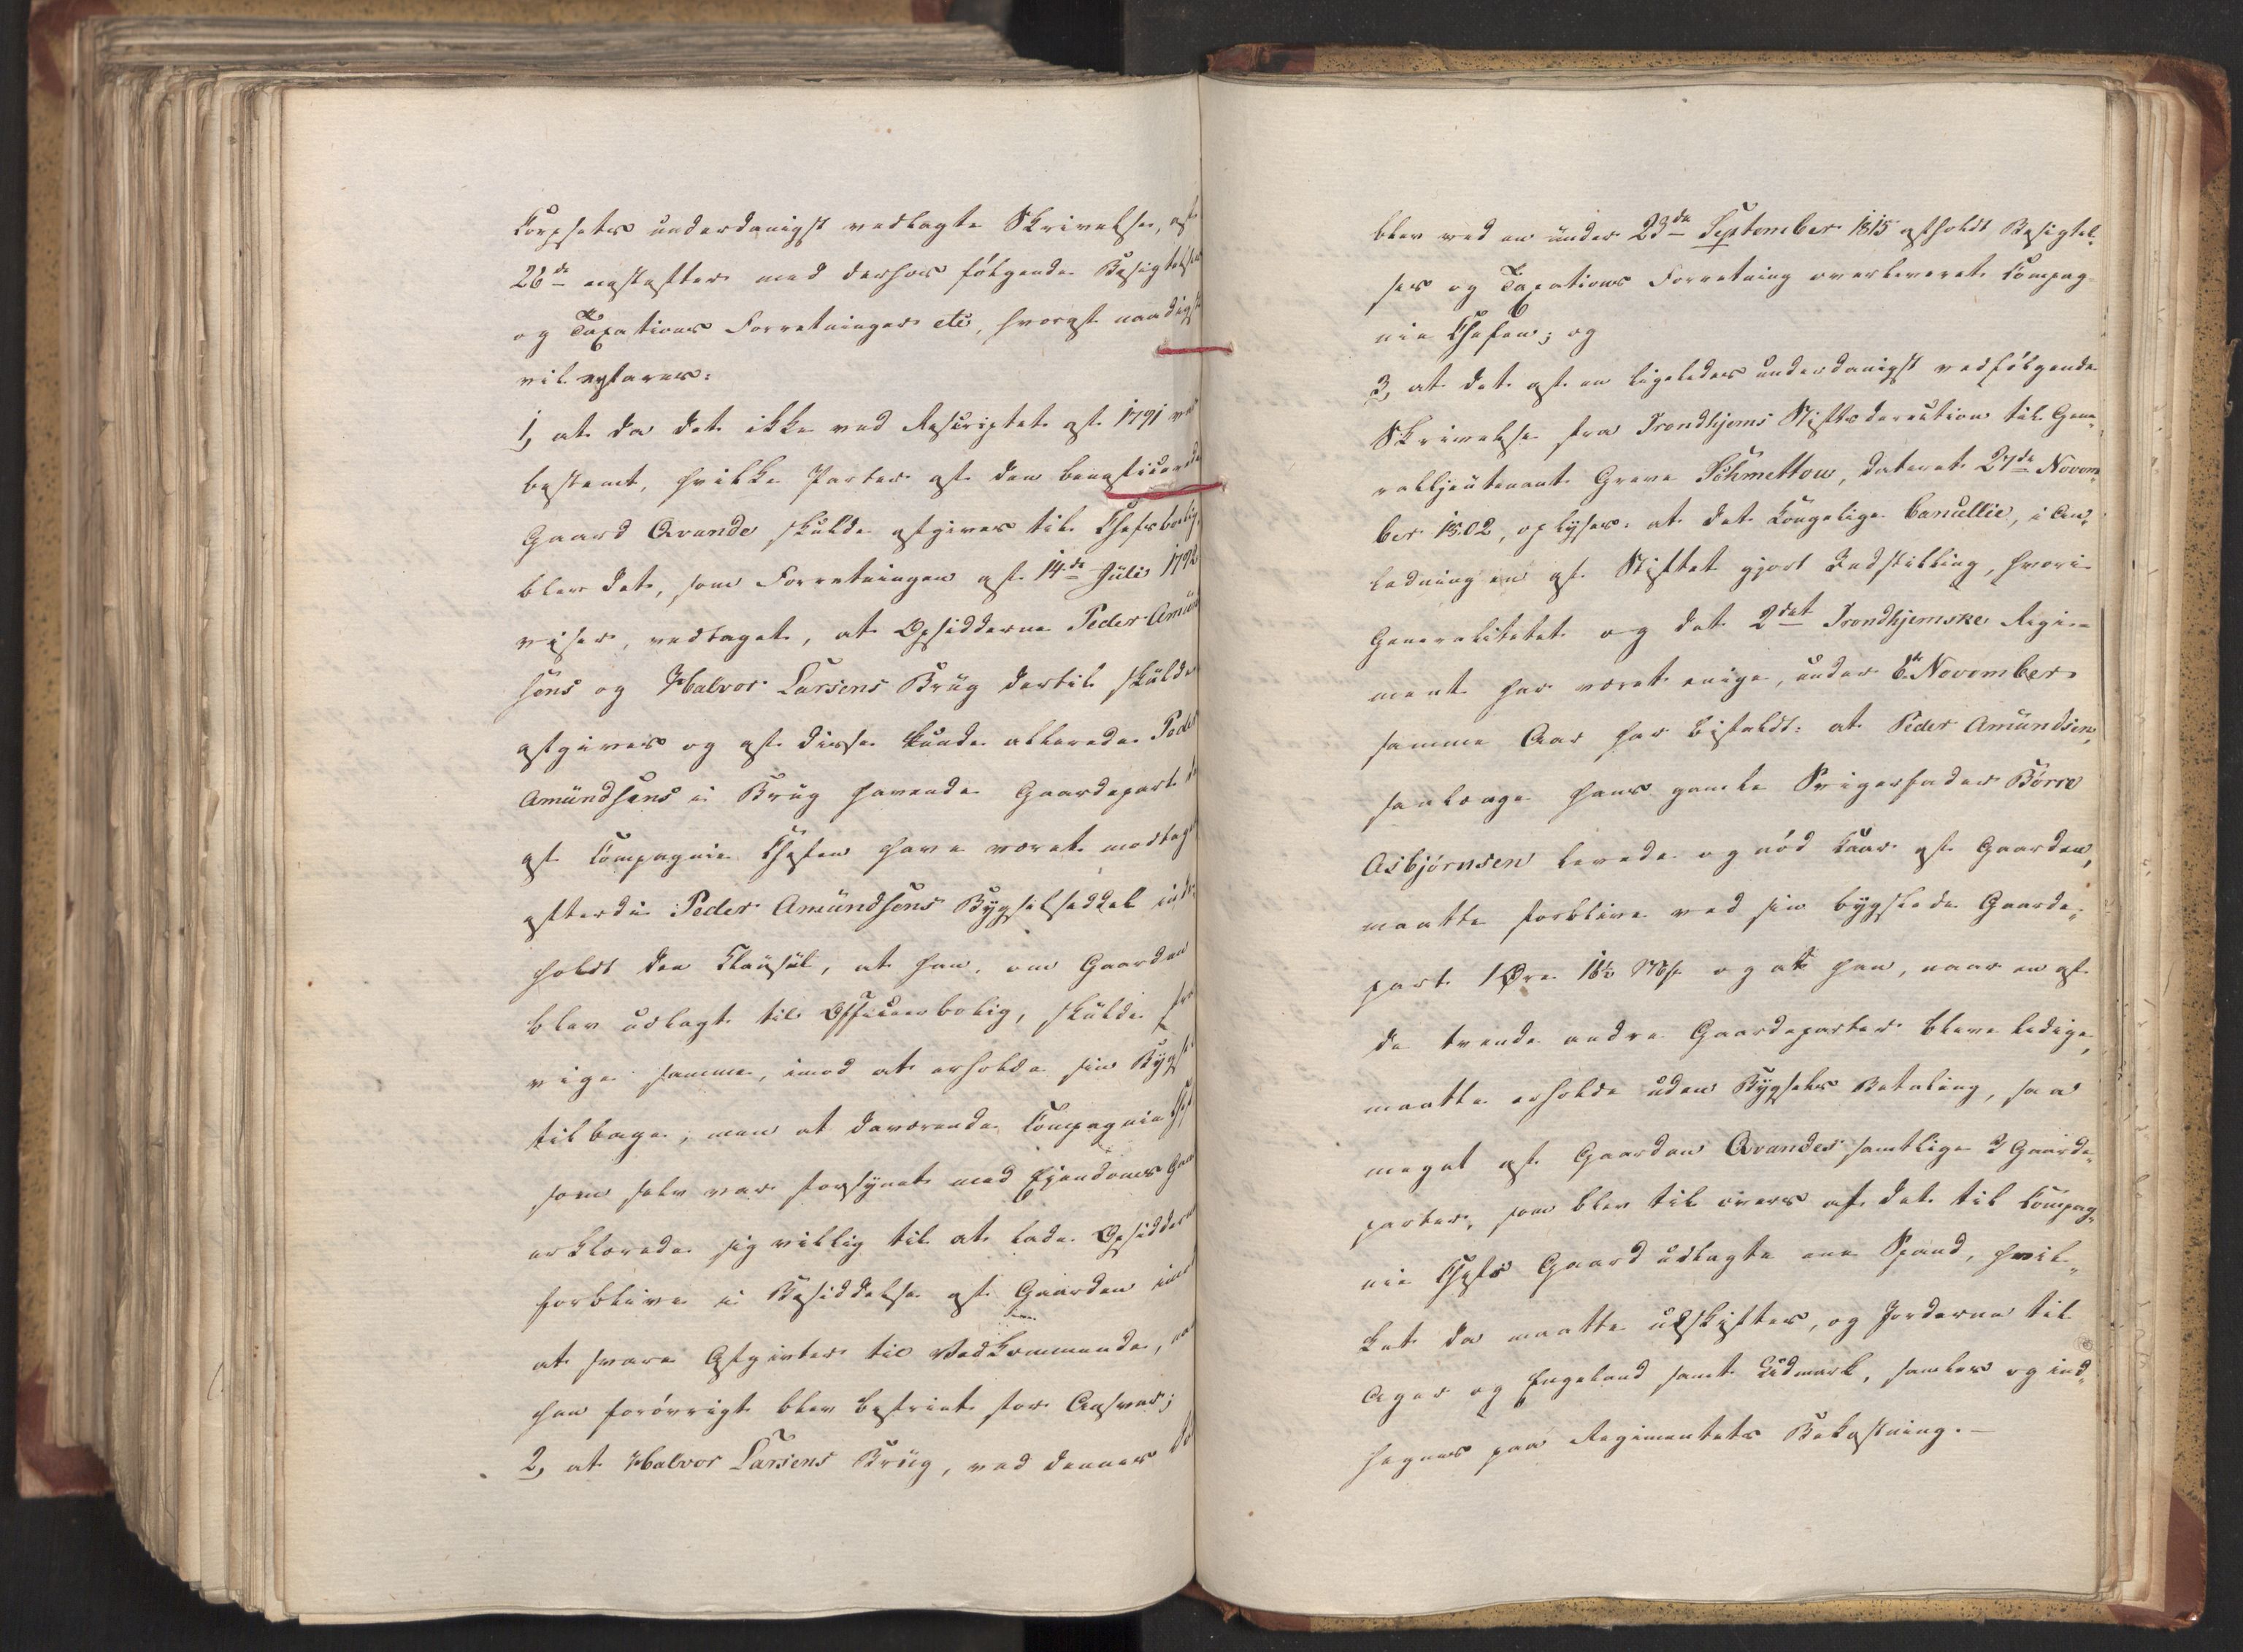 Corpsets underdanigst vedlagte Skrivelse, af
26de næstefter med derhos følgende Besigtelses
og Taxations Forretninger etc, hvoraf naadigst
vil erfares:
1, at da det ikke ved Rescriptet af 1791 var
bestemt, hvilke Parter af den beneficerede
Gaard Qvande skulde afgives til Chefsbolig,
blev det, som Forretningen af 14de Juli 1792
viser, vedtaget, at Opsidderne Peder Amund
sens og Halvor Larsens Brug dertil skulde
afgives og af disse kunde allerede Peder
Amundsens i Brug havende Gaardepart
af Compagnie Chefen have været modtaget
efterdi Peder Amundsens Bygselseddel inde
holdt den Clausul, at han, om Gaarden
blev udlagt til Officeerbolig, skulde fra
vige samme, imod at erholde sin Bygsel
tilbage, men at daværende Compagnie Chef
som selv var forsynet med Eiendoms Gaard
erklærede sig villig til at lade Opsidderne
forblive i Besiddelse af Gaarden imod
at svare Afgivter til Vedkommende,
han forøvrigt blev befriet for Ansvar;
2, at Halvor Larsens Brug, ved dennes Død
blev ved en under 23de September 1815 afholdt Besigtel„
ses og Taxations Forretning overleveret Compag
nie Chefen; og
3, at det af en ligeledes underdanigst vedfølgende
Skrivelse fra Trondhjems Stiftsdirection til Gene„
rallieutenant Greve Schmettow, dateret 27de Novem„
ber 1802, oplyses: at det Kongelige Cancellie, i An„
ledning en af Stiftet gjort Indstilling, hvori
Generalitetet og det 2det Trondhjemske Regi„
ment har været enige, under 6te November
samme Aar har bifaldt: at Peder Amundsen,
saalænge hans gamle Svigerfader Børre
Asbjørnsen levede og nød Kaar af Gaarden,
maatte forblive ved sin bygslede Gaarde„
part 1 Øre 16½ Mk og at han, naar en af
de tvende andre Gaardeparter bleve ledige,
maatte erholde uden Bygsels Betaling, saa
meget af Gaarden Qvandes samtlige 3 Gaarde„
parter, som blev til overs af det til Compag„
nie Chefs Gaard udlagte ene Spand, hvil„
ket da maatte udskiftes, og Jorderne til
Ager og Engeland samt Udmark, samles og ind„
hegnes paa Regimentets Bekostning.—